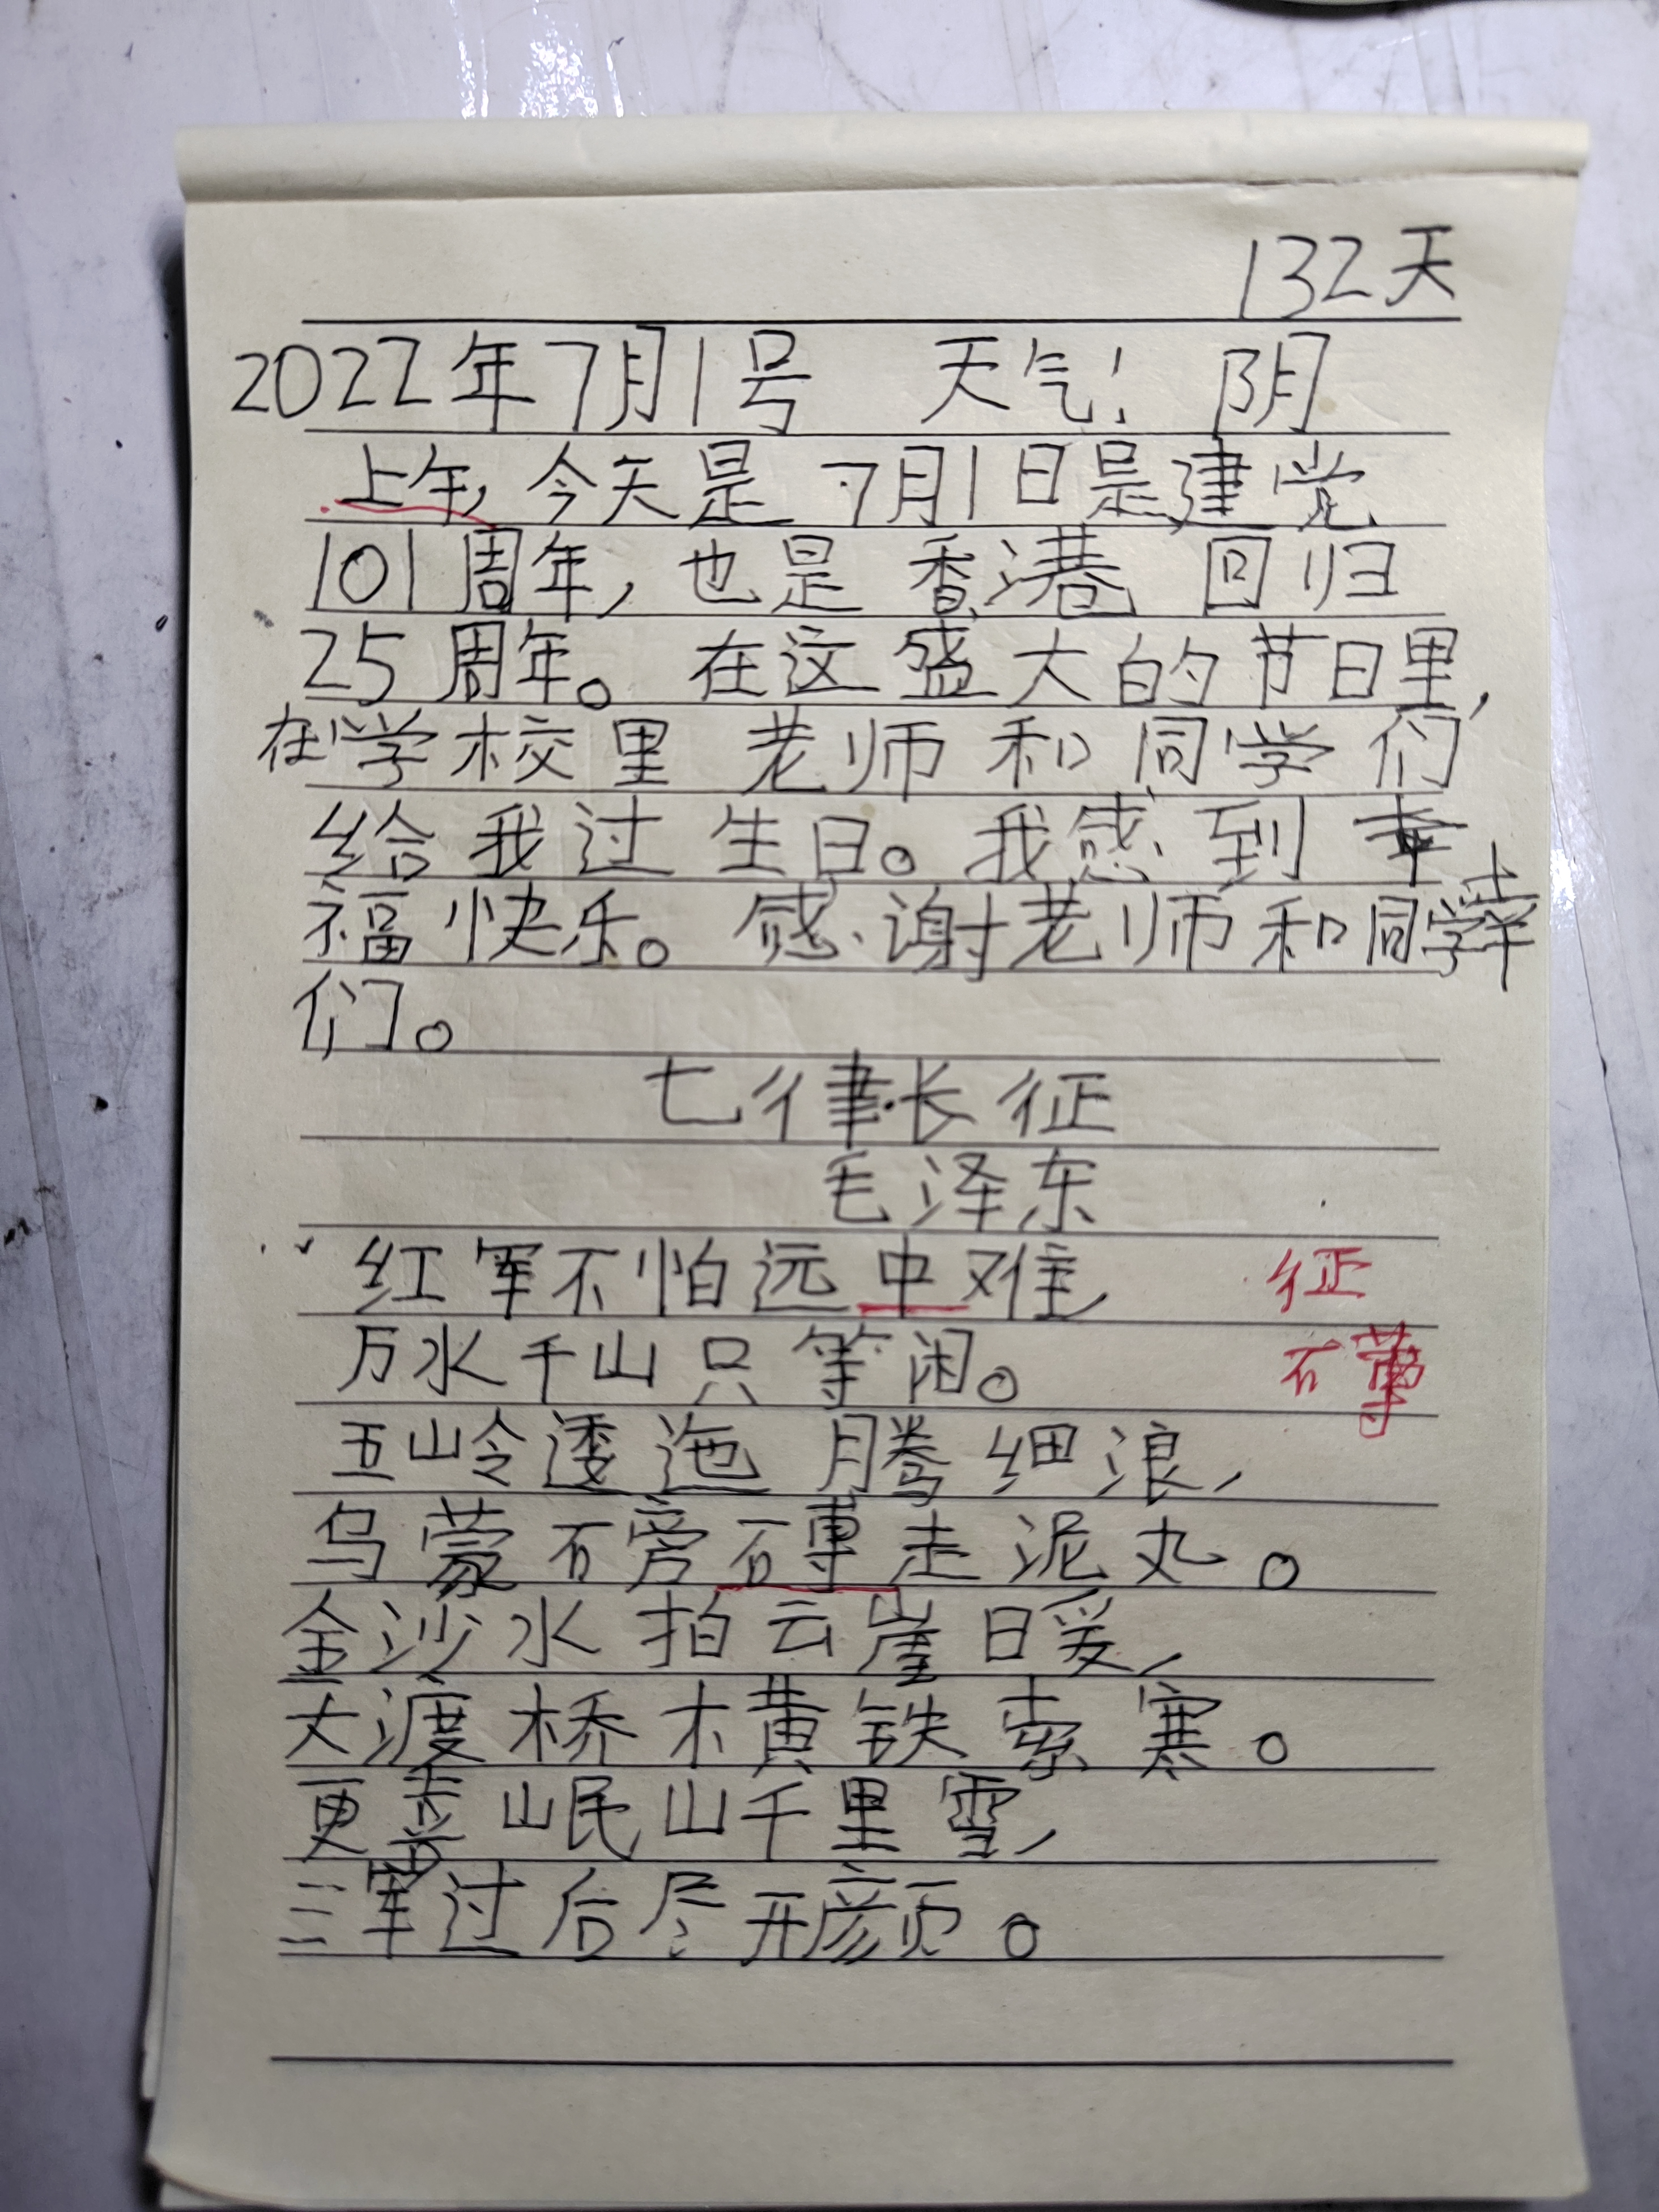 132天
2022年7月1号 天气: 阴
上午,今天是7月1日是建党
101周年,也是香港回归
25周年。在这盛大的节日里,
在学校里老师和同学们
给我过生日。我感到幸
福快乐。感谢老师和同学
们。
七律·长征
毛泽东
红军不怕远中难, 征
万水千山只等闲。 礴
五岭逶迤腾细浪,
乌蒙磅礴走泥丸。
金沙水拍云崖暖,
大渡桥横铁索寒。
更喜岷山千里雪,
三军过后尽开颜。